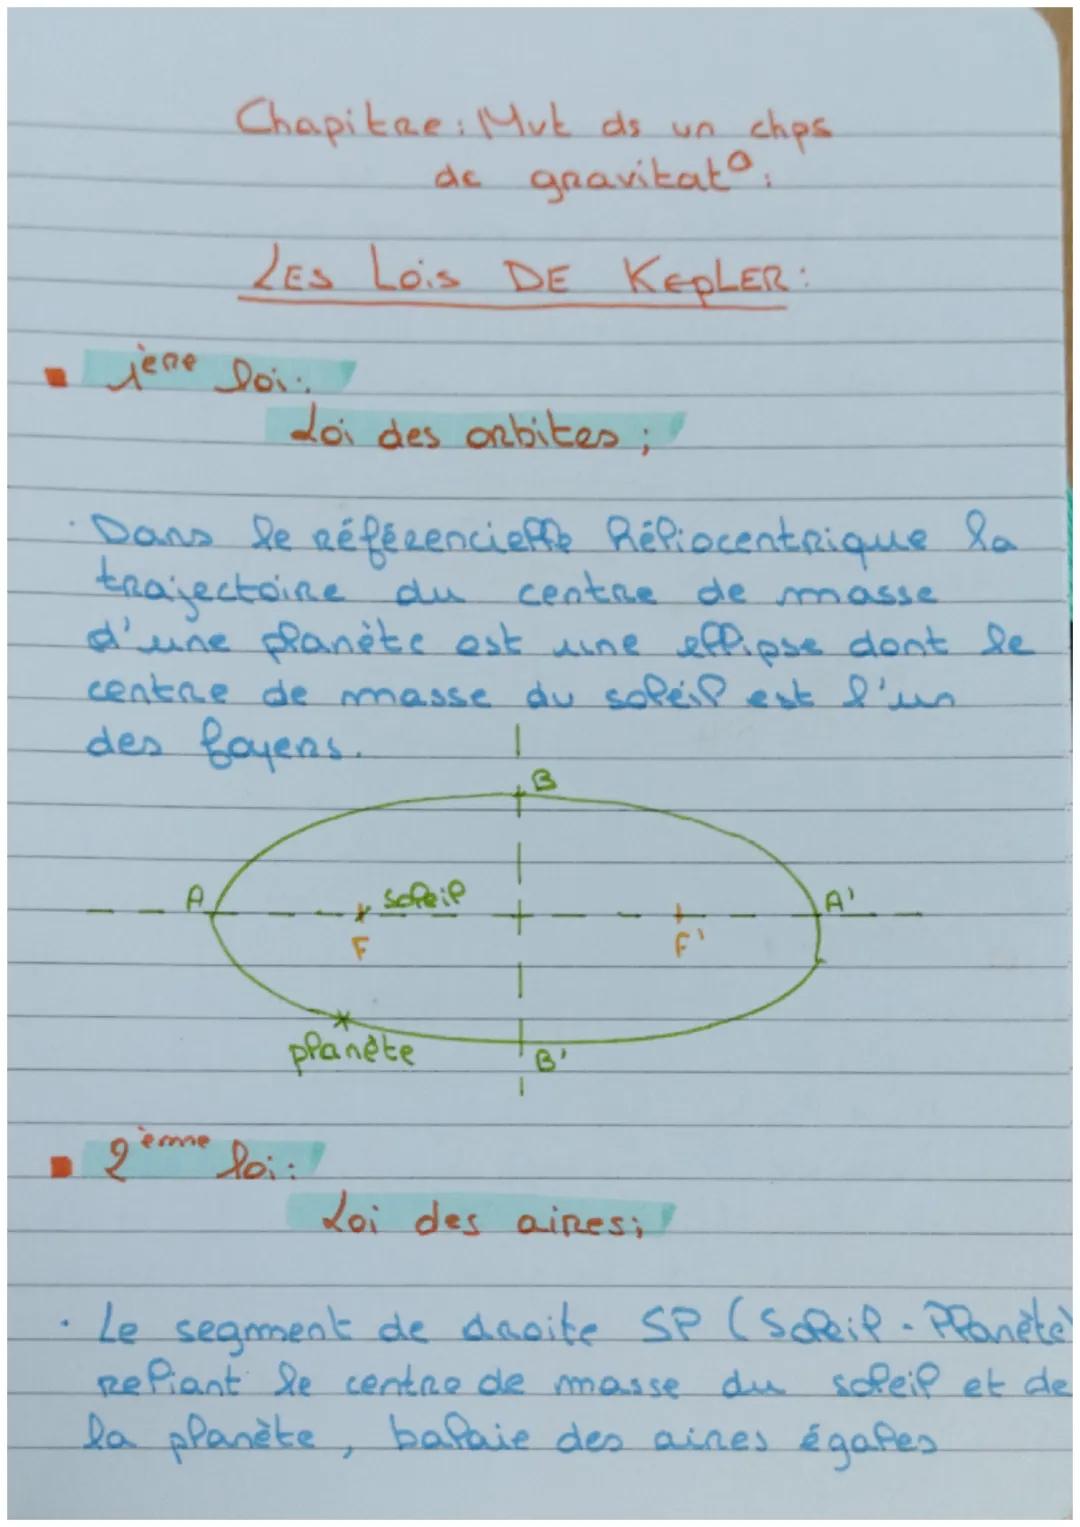 Chapitre : Mvt ds un chps
de gravitat° :
LES Lois DE KEpLER :
1ère loi :
Loi des orbites ;
· Dans le référencielle héliocentrique la
trajectoire du centre de masse
d'une planète est une ellipse dont le
centre de masse du soleil est l'un
des foyers.
B
A
soleil
A'
F
F'
planète
B'
2ème loi :
Loi des aires ;
· Le segment de droite SP (Soleil - Planète)
reliant le centre de masse du soleil et de
la planète, balaie des aires égales